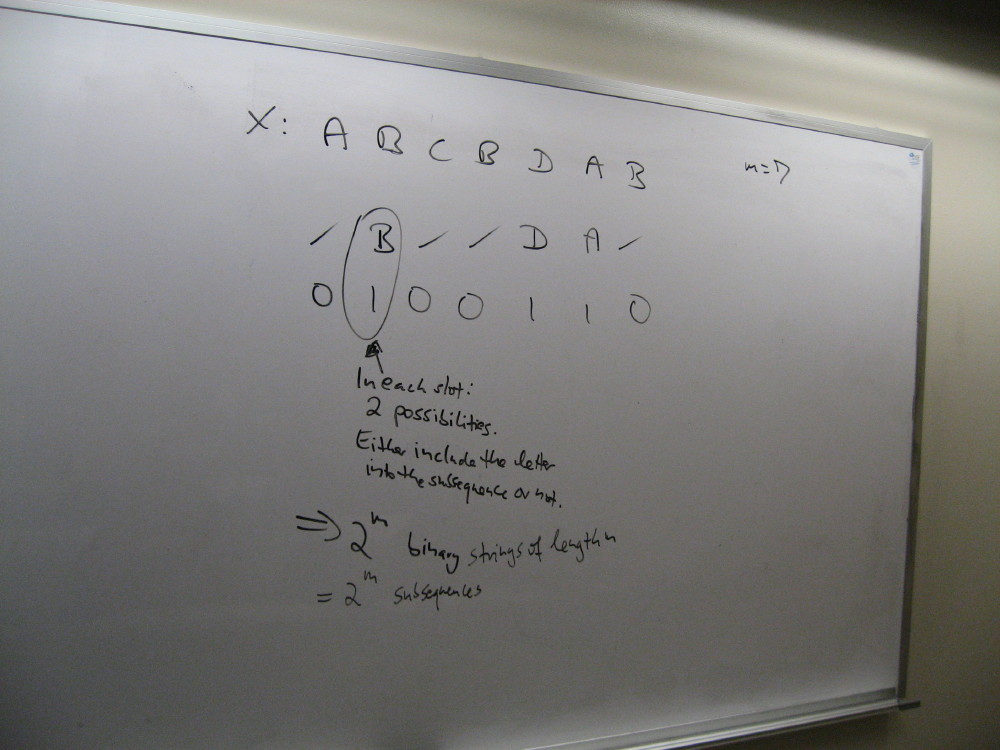 X: A B C B D A B m=7
/ B / / D A /
0 1 0 0 1 1 0
In each slot:
2 possibilities.
Either include the letter
into the subsequence or not.
⇒ 2^m binary strings of length m
= 2^m subsequences